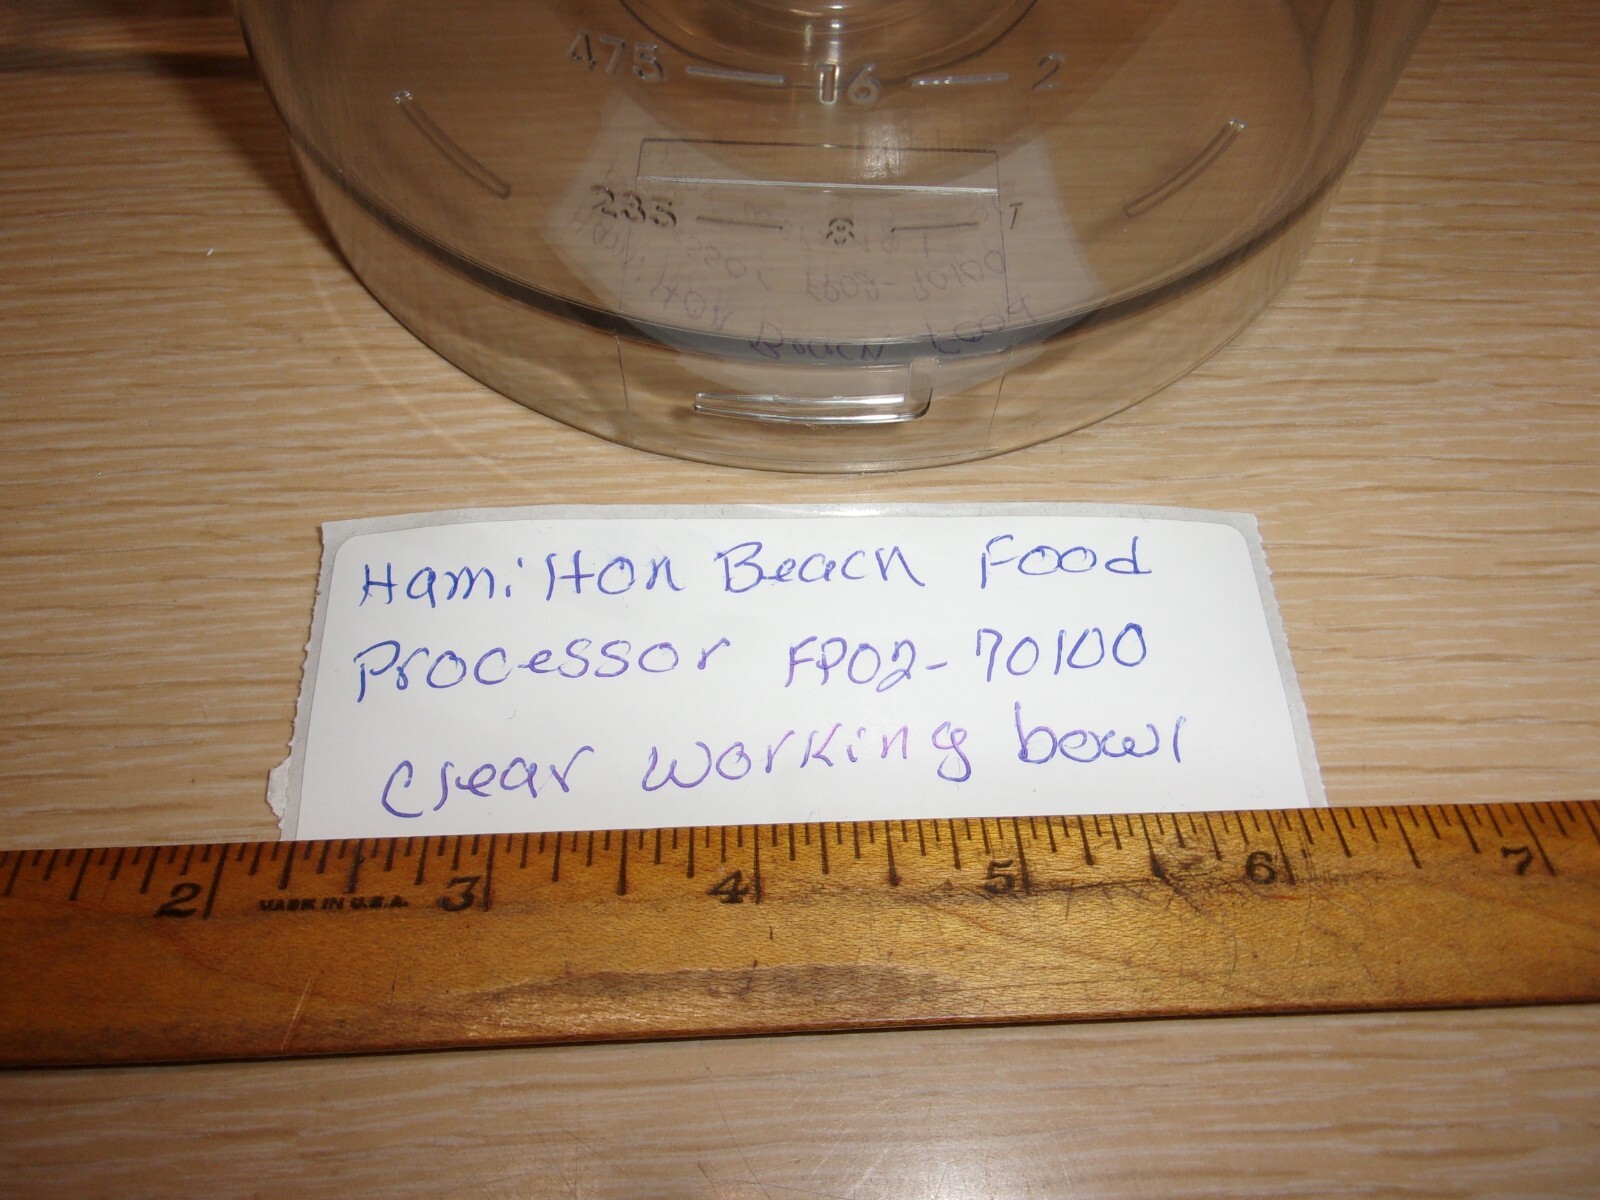 475 16 2
235 8 1
Hamilton Beach Food
Processor FP02-70100
Clear working bowl
2 MADE IN U.S.A. 3 4 5 6 7